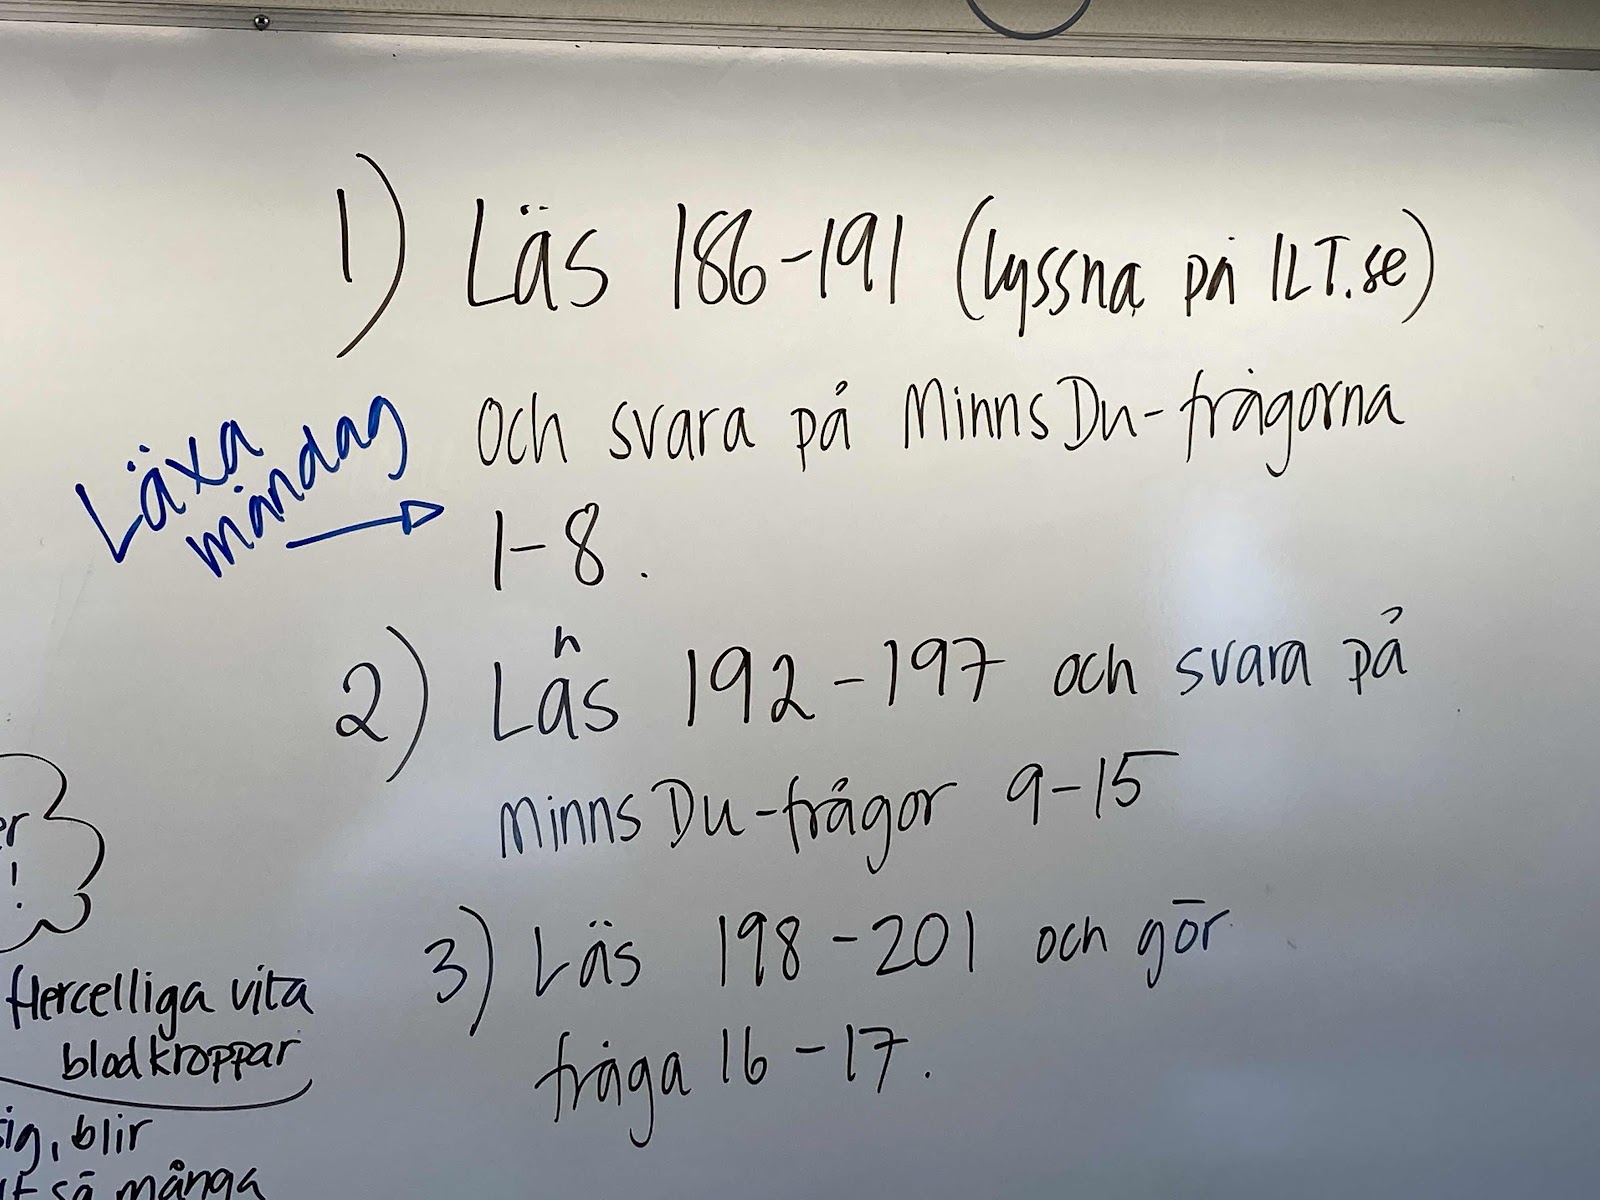 1) Läs 186-191 (lyssna på ILT.se)
och svara på MinnsDu-frågorna
1-8.
Läxa
måndag
2) Läs 192-197 och svara på
MinnsDu-frågor 9-15
3) Läs 198-201 och gör
fråga 16-17.
er
!
flercelliga vita
blodkroppar
sig, blir
så många